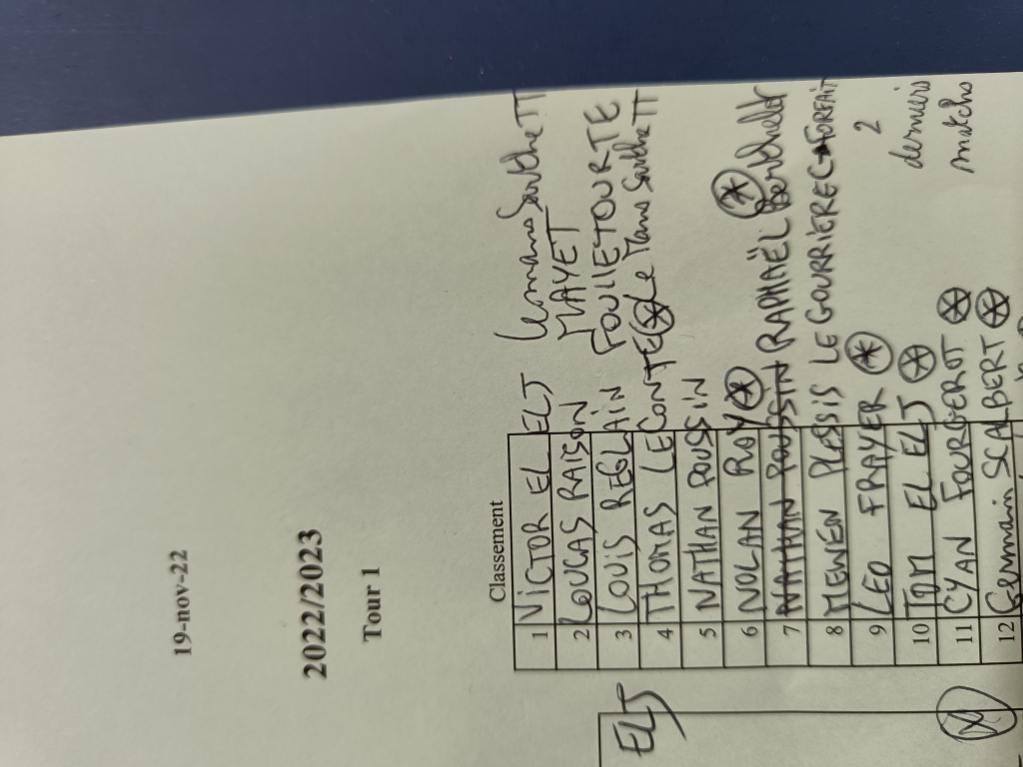 19-nov-22
2022/2023
Tour 1
Classement
1 VICTOR EL ELJ Lemans Sarthe TT
2 LOUCAS RAISON MAYET
3 LOUIS REGLAIN FOULLETOURTE
4 THOMAS LECONTE * Le Mans Sarthe TT
5 NATHAN POUSSIN
6 NOLAN ROY *
7 NATHAN POUSSIN RAPHAËL Berthelot *
8 MEWEN PLESSIS LE GOURRIEREC → FORFAIT 2 derniers matchs
9 LEO FRAYER *
10 TOM EL ELJ *
11 CYAN FOURGEROT *
12 Germain SCALBERT *
ELJ